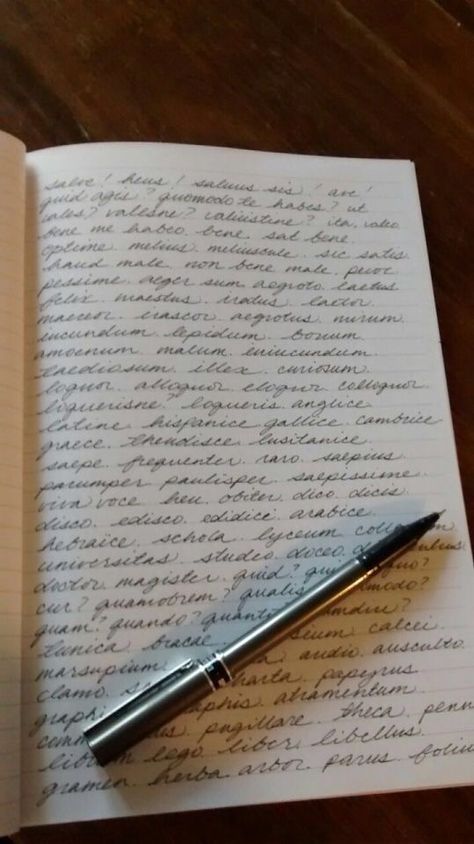 salve! heus! salvus sis! ave!
quid agis? quomodo te habes? ut
vales? valesne? valuistine? ita, valeo
bene me habeo. bene. sat bene.
optime. melius. meliuscule. sic satis
haud male. non bene. male. peior
pessime. aeger sum. aegroto. laetus
felix. maestus. iratus. laetor
maereor. irascor. aegrotus. mirum.
iucundum. lepidum. bonum.
amoenum. malum. iniucundum.
taediosum. illex. curiosum.
loquor. alloquor. eloquor. colloquor.
loquerisne? loqueris. anglice
latine. hispanice. gallice. cambrice
graece. theodisce. lusitanice.
saepe. frequenter. raro. saepius
parumper. paulisper. saepissime.
viva voce. heu. obiter. dico. dicis
disco. edisco. edidici. arabice
hebraice. schola. lyceum.
universitas. studeo. doceo.
doctor. magister. quid?
cur? quamobrem? qualis
quam? quando?
tunica. bracae. calcei.
marsupium. audio. ausculto.
clamo. charta. papyrus
graphi atramentum.
comm pugillare. theca. penn
lib lego. liber. libellus.
gramen. herba. arbor. parus. foliu